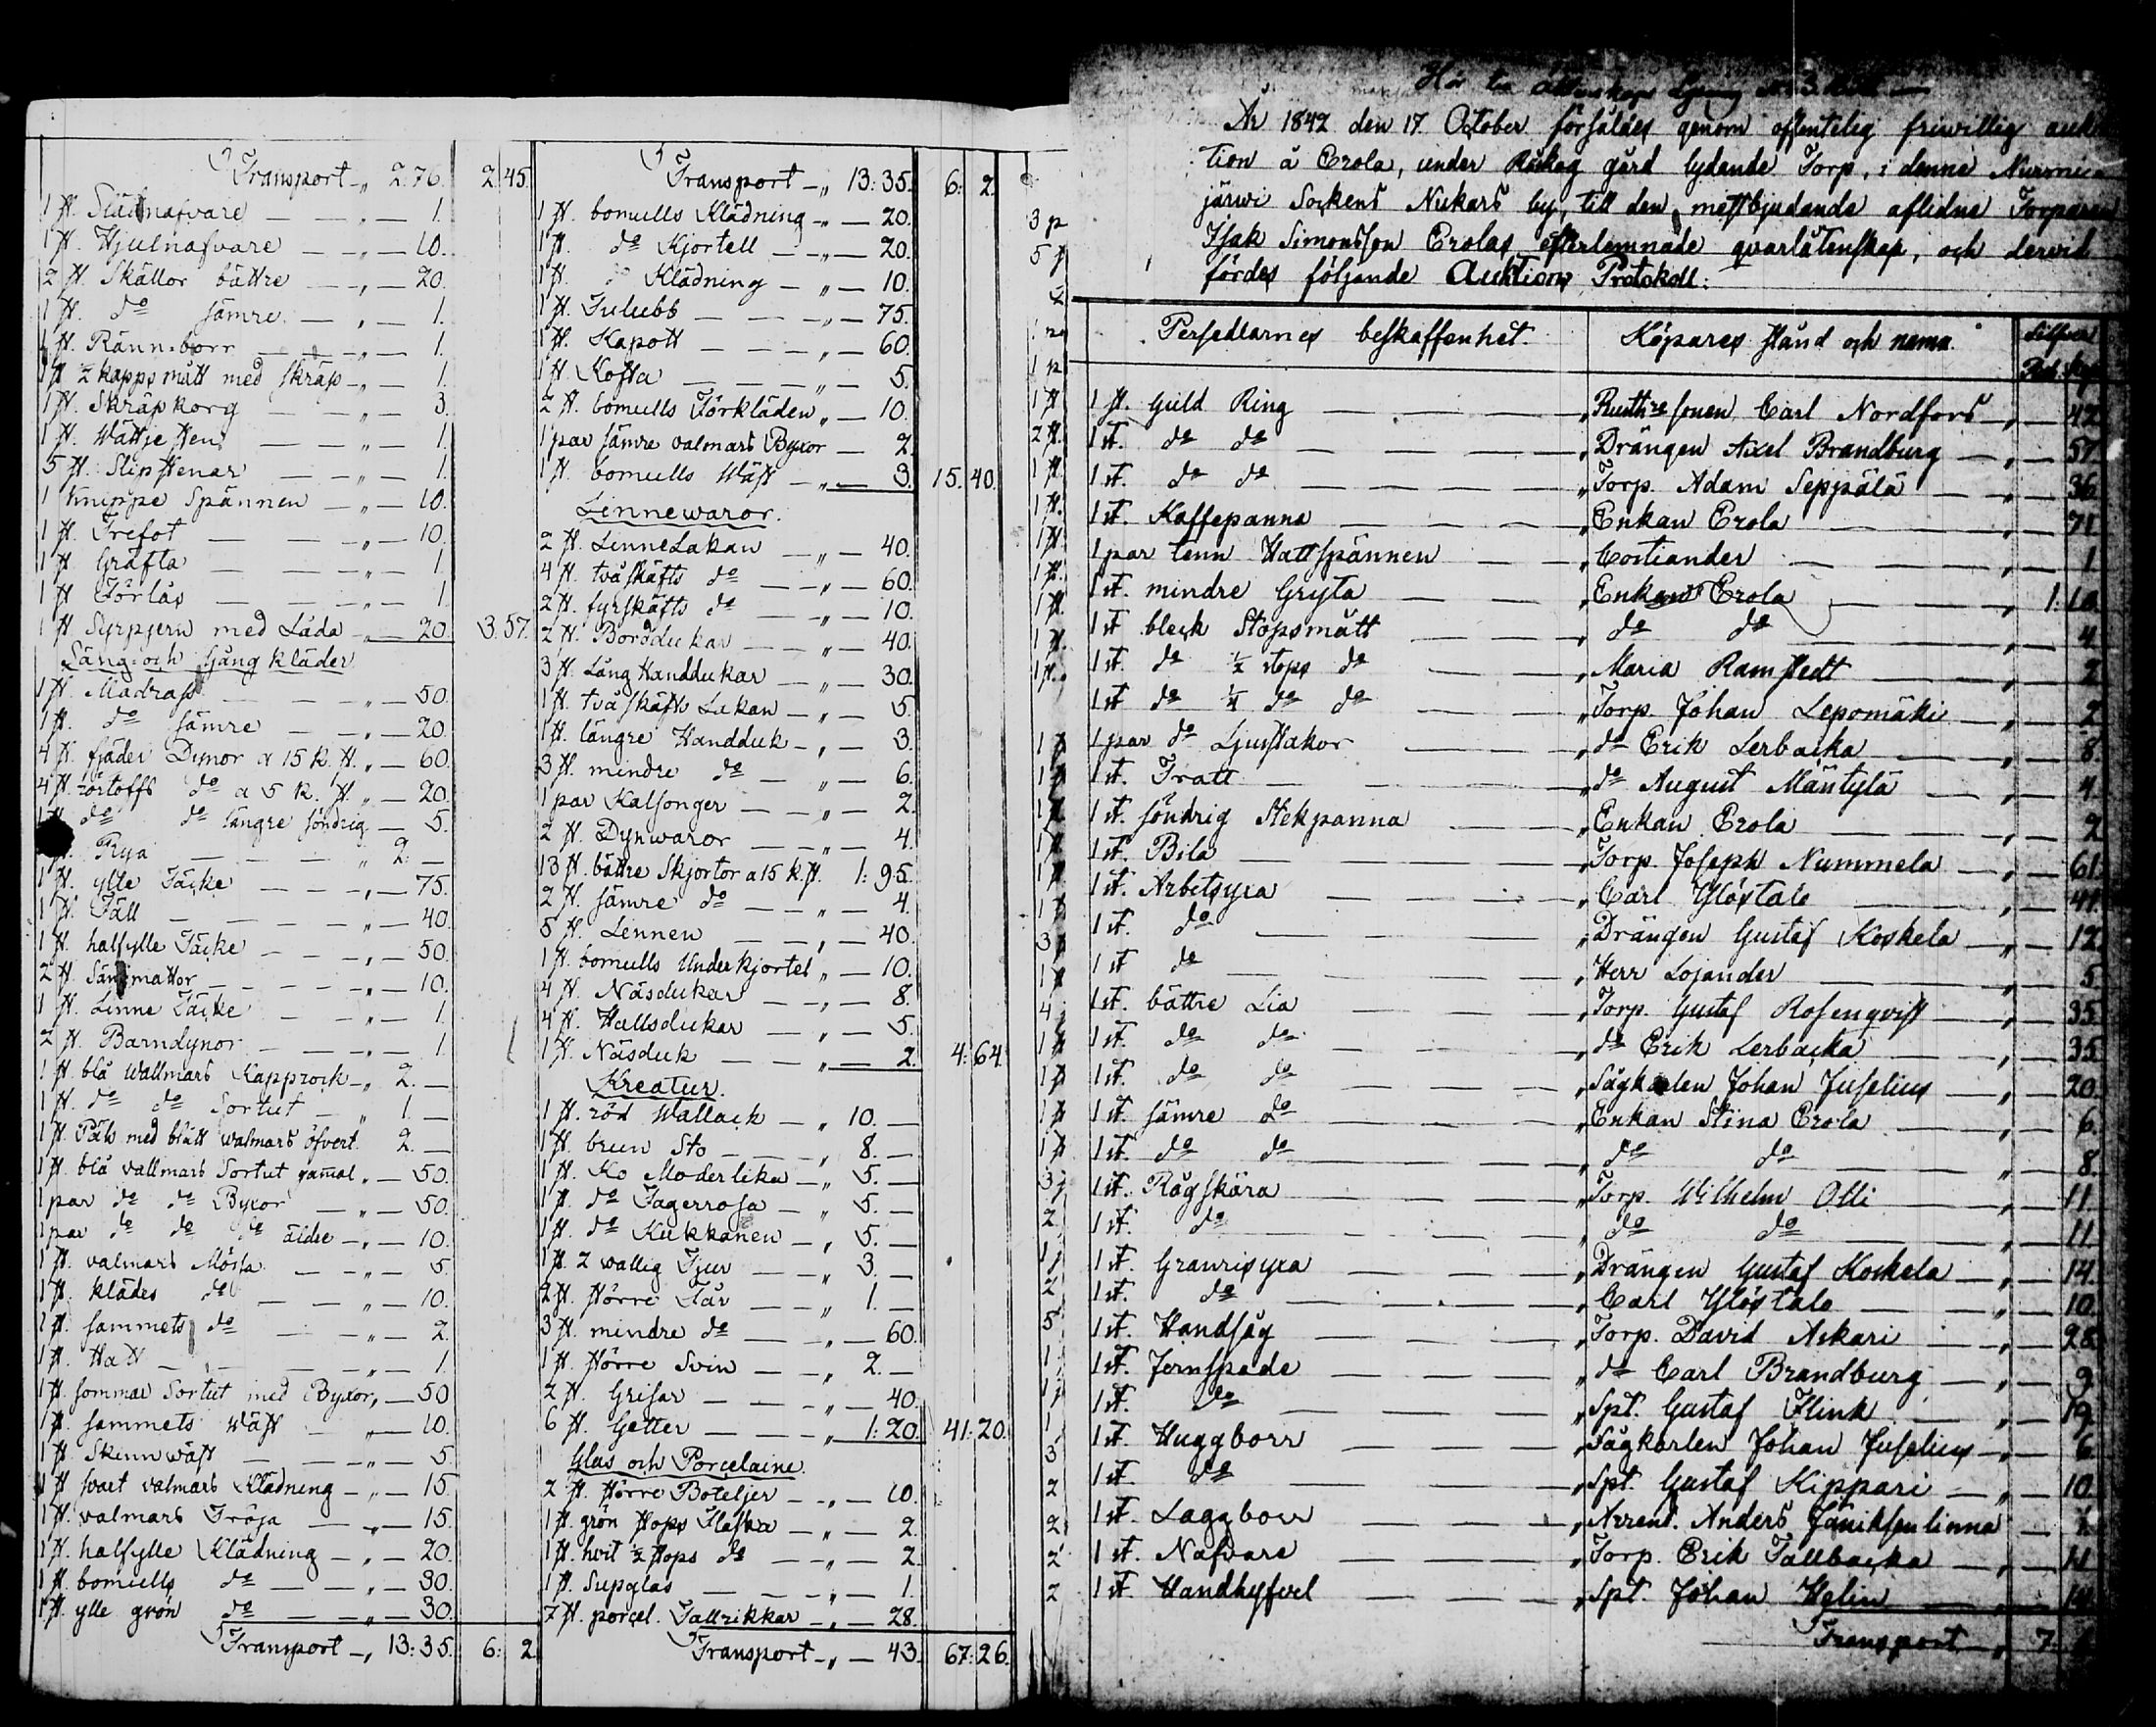 Transport „ 2.76. 2 45.
1 st. Slädnafvare — „ — 1.
1 st. Hjulnafvare — „ — 10.
2 st. Skällor bättre — „ — 20.
1 st. do sämre — „ — 1.
1 st. Rännborr — „ — 1.
1 st. ½ kapps mått med skräp — „ — 1.
1 st. Skräpkorg — „ — 3.
1 st. Wättje sten — „ — 1.
5 st. Slipstenar — „ — 1.
1 Knippe Spännen — „ — 10.
1 st. Trefot — „ — 10.
1 st. Gräfta — „ — 1.
1 st. Förlås — „ — 1.
1 st. Syrpjern med Låda — „ — 20. 3.57.
Säng- och Gångkläder
1 st. Madrass — „ — 50.
1 st. do sämre — „ — 20.
4 st. fjäder Dynor a 15 k. st. „ — 60.
4 st. do a 5 k. st. „ — 20.
do do längre söndrig — 5.
Rya — „ 2. —
1 st. ylle Täcke — „ — 75.
1 st. Fäll — „ — 40.
1 st. halfylle Täcke — „ — 50.
2 st. Sängmattor — „ — 10.
1 st. Linne Täcke — „ — 1.
2 st. Barndynor — „ — 1.
1 st. blå Wallmars Kapprock — „ 2. —
1 st. do do Sortut — „ 1. —
1 st. Päls med blått walmars öfvert. 2. —
1 st. blå vallmars Sortut gammal „ — 50.
1 par do do Byxor — „ — 50.
1 par do do do äldre — „ — 10.
1 st. valmars Mössa — „ — 5.
1 st. klädes do — „ — 10.
1 st. sammets do — „ — 2.
1 st. Hatt — „ — 1.
1 st. sommar Sortut med Byxor „ — 50
1 st. sammets Wäst — „ — 10.
1 st. Skinnwäst — „ — 5.
1 st. svart valmars Klädning — „ — 15.
1 st. valmars Tröja — „ — 15.
1 st. halfylle Klädning — „ — 20.
1 st. bomulls do — „ — 30.
1 st. ylle grön do — „ — 30.
Transport — „ 13:35. 6: 2
Transport — „ 13:35. 6: 2.
1 st. bomulls Klädning — „ — 20.
1 st. do Kjortell — „ — 20.
1 st. Klädning — „ — 10.
1 st. Tulubb — „ — 75.
1 st. Kapott — „ — 60.
1 st. Kofta — „ — 5.
2 st. bomulls Förkläden „ — 10.
1 par sämre valmars Byxor — 2.
1 st. bomulls Wäst — „ — 3. 15.40.
Linnewaror.
2 st. Linne Lakan — „ — 40.
4 st. tvåskäfts do — „ — 60.
2 st. fyrskäfts do — „ — 10.
2 st. Bordduckar — „ — 40.
3 st. Lång Handdukar — „ — 30.
1 st. tvåskäfts Lakan — „ — 5.
1 st. längre Handduk — „ — 3.
3 st. mindre do — „ — 6.
1 par Kalsonger — „ — 2.
2 st. Dynwaror — „ — 4.
13 st. bättre Skjortor a 15 k. st. 1:95.
2 st. sämre do — „ — 4.
5 st. Linnen — „ — 40.
1 st. bomulls Underkjortel „ — 10.
4 st. Näsdukar — „ — 8.
4 st. Hallsdukar — „ — 5.
1 st. Näsduk — „ — 2. 4:64.
Kreatur.
1 st. röd Wallack — „ 10. —
1 st. brun Sto — „ 8. —
1 st. Ko Moderlika — „ 5. —
1 st. do Fagerrosa — „ 5. —
1 st. do Kukkanen — „ 5. —
1 st. 2 wallig Tjur — „ 3. —
2 st. större Får — „ 1. —
3 st. mindre do — „ — 60.
1 st. större Svin — „ 2. —
2 st. Grisar — „ — 40.
6 st. Getter — „ 1:20. 41:20.
Glas och Porcelaine.
2 st. större Boteljer — „ — 10.
1 st. grön stops Flaska — „ — 2.
1 st. hvit ½ stops do — „ — 2.
1 st. Supglas — „ — 1.
7 st. porcel. Tallrikkar — „ — 28.
Transport — „ — 43. 67:26.
År 1842 den 17 October försåldes genom offentelig friwillig auk
tion å Erola, under gård lydande Torp, i denne Nurmi
järwi Sockens Nukars by, till den mestbjudande aflidne Torparen
Isak Simonsson Erolas efterlemnade qvarlåtenskap, och dervid
fördes följande Auktions Protokoll:
Persedlarnes beskaffenhet. Köpares stånd och namn. Silfver
Rub. Kop.
1 st. Guld Ring — „ sonen Carl Nordfors „ — 42
1 st. do do — „ Drängen Axel Brandburg „ — 57
1 st. do do — „ Torp. Adam Seppälä „ — 36
1 st. Kaffepanna — „ Enkan Erola „ — 71
1 par tenn Hattspännen — „ Costiander „ — 1
1 st. mindre Gryta — „ Enkan Erola „ 1.10.
1 st. bleck Stopsmått — „ do do „ — 4
1 st. do ½ stops do — „ Maria Ramstedt „ — 2
1 st. do ¼ do do — „ Torp. Johan Lepomäki „ — 2
1 par do Ljusstakor — „ do Erik Lerbacka „ — 8
1 st. Tratt — „ do August Mäntylä „ — 4
1 st. söndrig Stekpanna — „ Enkan Erola „ — 2
1 st. Bila — „ Torp. Joseph Nummela „ — 61
1 st. Arbetsyxa — „ Carl Ylöstalo „ — 41.
1 st. do — „ Drängen Gustaf Koskela „ — 12
1 st. do — „ Herr Lojander „ — 5
1 st. bättre Lia — „ Torp. Gustaf Rosenqvist „ — 35
1 st. do do — „ do Erik Lerbacka „ — 35
1 st. do do — „ Sågkarlen Johan Juselius „ — 20
1 st. sämre do — „ Enkan Stina Erola „ — 6.
1 st. do do — „ do do „ — 8.
1 st. Rågskära — „ Torp. Wilhelm Olli „ — 11.
1 st. do — „ do do „ — 11.
1 st. Granrisyxa — „ Drängen Gustaf Koskela „ — 14.
1 st. do — „ Carl Ylöstalo „ — 10.
1 st. Handsåg — „ Torp. David Askari „ — 28
1 st. Jernspade — „ do Carl Brandburg „ — 9
1 st. do — „ Spt. Gustaf Flink „ — 19.
1 st. Huggborr — „ Sågkarlen Johan Juselius „ — 6
1 st. do — „ Spt. Gustaf Kippari „ — 10.
1 st. Laggborr — „ Arrend. Anders —
1 st. Nafvare — „ Torp. Erik Tallbacka „ — 11
1 st. Handhyfvel — „ Spt. Johan Helin — „ —
Transport — „ 7.